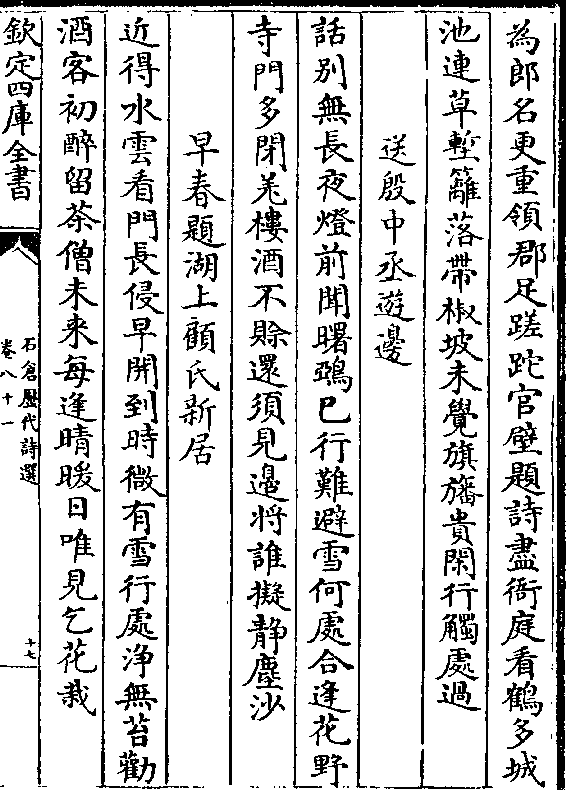 為郎名更重領郡足蹉跎官壁題詩盡衙庭看鶴多城
池連草塹籬落帶椒坡未覺旗旛貴閑行觸處過
送殷中丞遊邊
話别無長夜燈前聞曙鵶已行難避雪何處合逢花野
寺門多閉羌樓酒不賖還須見邉將誰擬静塵沙
早春題湖上顧氏新居
近得水雲看門長侵早開到時微有雪行處浄無苔勸
酒客初醉留茶僧未来每逢晴暖日唯見乞花栽
欽定四庫全書
石倉歷代詩選
卷八十一
十七